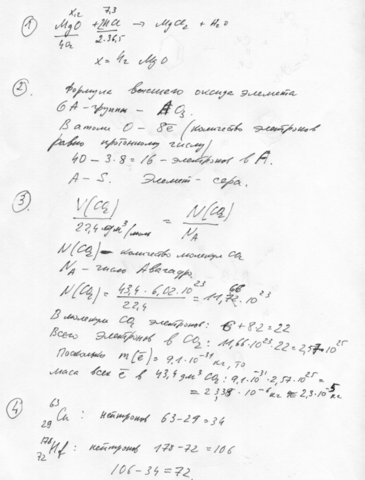 ①
x г 7,3
MgO + 2HCl → MgCl₂ + H₂O
40г 2·36,5
x = 4г MgO
②. Формула высшего оксида элемента
6А-группы - АO₃.
В атоме O - 8ē (количество электронов
равно протонному числу)
40 - 3·8 = 16 - электронов в А.
А - S. Элемент - сера.
③
V(CO₂) / 22,4 дм³/моль = N(CO₂) / N_A
N(CO₂) - количество молекул CO₂
N_A - число Авогадро
N(CO₂) = 43,4 · 6,02·10²³ / 22,4 = 11,66·10²³
В молекуле CO₂ электронов: 6 + 8·2 = 22
Всего электронов в CO₂: 11,66·10²³·22 = 2,57·10²⁵
Поскольку m(ē) = 9,1·10⁻³¹ кг, то
масса всех ē в 43,4 дм³ CO₂: 9,1·10⁻³¹·2,57·10²⁵ =
= 2339·10⁻⁶ кг ≈ 2,3·10⁻⁵ кг
④ ⁶³₂₉Cu : нейтронов 63-29=34
¹⁷⁸₇₂Hf : нейтронов 178-72=106
106-34=72